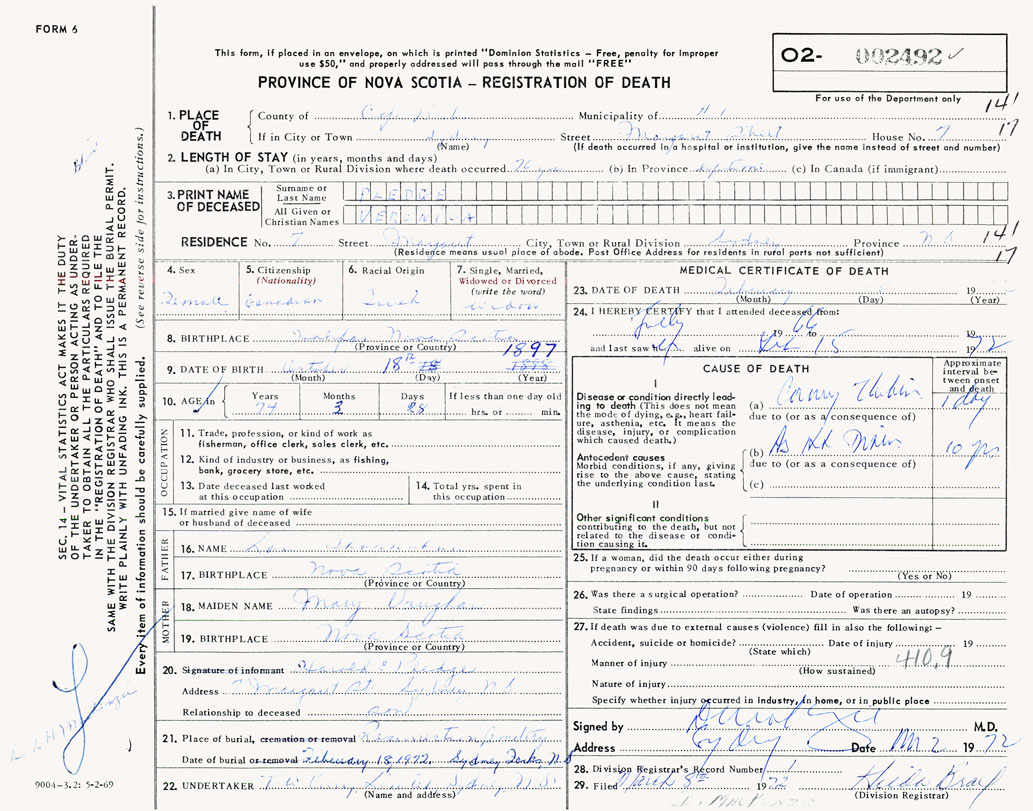 FORM 6
This form, if placed in an envelope, on which is printed "Dominion Statistics – Free, penalty for improper
use $50," and properly addressed will pass through the mail "FREE"
PROVINCE OF NOVA SCOTIA – REGISTRATION OF DEATH
O2- 002492 ✓
For use of the Department only
141
17
1. PLACE OF DEATH
County of Municipality of
If in City or Town Sydney Street Margaret House No. 7
(Name) (If death occurred in a hospital or institution, give the name instead of street and number)
2. LENGTH OF STAY (in years, months and days)
(a) In City, Town or Rural Division where death occurred (b) In Province (c) In Canada (if immigrant)
3. PRINT NAME OF DECEASED
Surname or Last Name PLEDGE
All Given or Christian Names VERONICA
RESIDENCE No. 7 Street Margaret City, Town or Rural Division Sydney Province N S
141
17
(Residence means usual place of abode. Post Office Address for residents in rural parts not sufficient)
4. Sex
Female
5. Citizenship
(Nationality)
Canadian
6. Racial Origin
Irish
7. Single, Married,
Widowed or Divorced
(write the word)
Widow
8. BIRTHPLACE Nova Scotia
(Province or Country)
1897
9. DATE OF BIRTH October 18th
(Month) (Day) (Year)
10. AGE in
Years
74
Months
3
Days
28
If less than one day old
hrs. or min.
OCCUPATION
11. Trade, profession, or kind of work as
fisherman, office clerk, sales clerk, etc.
12. Kind of industry or business, as fishing,
bank, grocery store, etc.
13. Date deceased last worked
at this occupation
14. Total yrs. spent in
this occupation
15. If married give name of wife
or husband of deceased
FATHER
16. NAME
17. BIRTHPLACE Nova Scotia
(Province or Country)
MOTHER
18. MAIDEN NAME Mary Vaughan
19. BIRTHPLACE Nova Scotia
(Province or Country)
20. Signature of informant Harold E
Address 7 Margaret St. Sydney N S
Relationship to deceased son
21. Place of burial, cremation or removal Resurrection Cemetery
Date of burial or removal February 18, 1972. Sydney Forks, N S
22. UNDERTAKER Sydney, N S
(Name and address)
MEDICAL CERTIFICATE OF DEATH
23. DATE OF DEATH February 19
(Month) (Day) (Year)
24. I HEREBY CERTIFY that I attended deceased from:
July 19 66
to 19
and last saw h alive on Feb 15 19 72
CAUSE OF DEATH
Approximate
interval be-
tween onset
and death
I
Disease or condition directly lead-
ing to death (This does not mean
the mode of dying, e.g., heart fail-
ure, asthenia, etc. It means the
disease, injury, or complication
which caused death.)
(a) 1 day
due to (or as a consequence of)
Antecedent causes
Morbid conditions, if any, giving
rise to the above cause, stating
the underlying condition last.
(b) 10 yrs
due to (or as a consequence of)
(c)
II
Other significant conditions
contributing to the death, but not
related to the disease or condi-
tion causing it.
25. If a woman, did the death occur either during
pregnancy or within 90 days following pregnancy?
(Yes or No)
26. Was there a surgical operation? Date of operation 19
State findings Was there an autopsy?
27. If death was due to external causes (violence) fill in also the following: –
Accident, suicide or homicide? Date of injury 19
(State which)
Manner of injury 410.9
(How sustained)
Nature of injury
Specify whether injury occurred in industry, in home, or in public place
Signed by M.D.
Address Sydney Date Mar 2 19 72
28. Division Registrar's Record Number
29. Filed March 8th 1972
(Division Registrar)
D. MACKENZIE
SEC. 14 – VITAL STATISTICS ACT MAKES IT THE DUTY
OF THE UNDERTAKER OR PERSON ACTING AS UNDER-
TAKER TO OBTAIN ALL THE PARTICULARS REQUIRED
IN THE "REGISTRATION OF DEATH" AND TO FILE THE
SAME WITH THE DIVISION REGISTRAR WHO SHALL ISSUE THE BURIAL PERMIT.
WRITE PLAINLY WITH UNFADING INK. THIS IS A PERMANENT RECORD.
Every item of information should be carefully supplied. (See reverse side for instructions.)
9004-3.2: 5-2-69